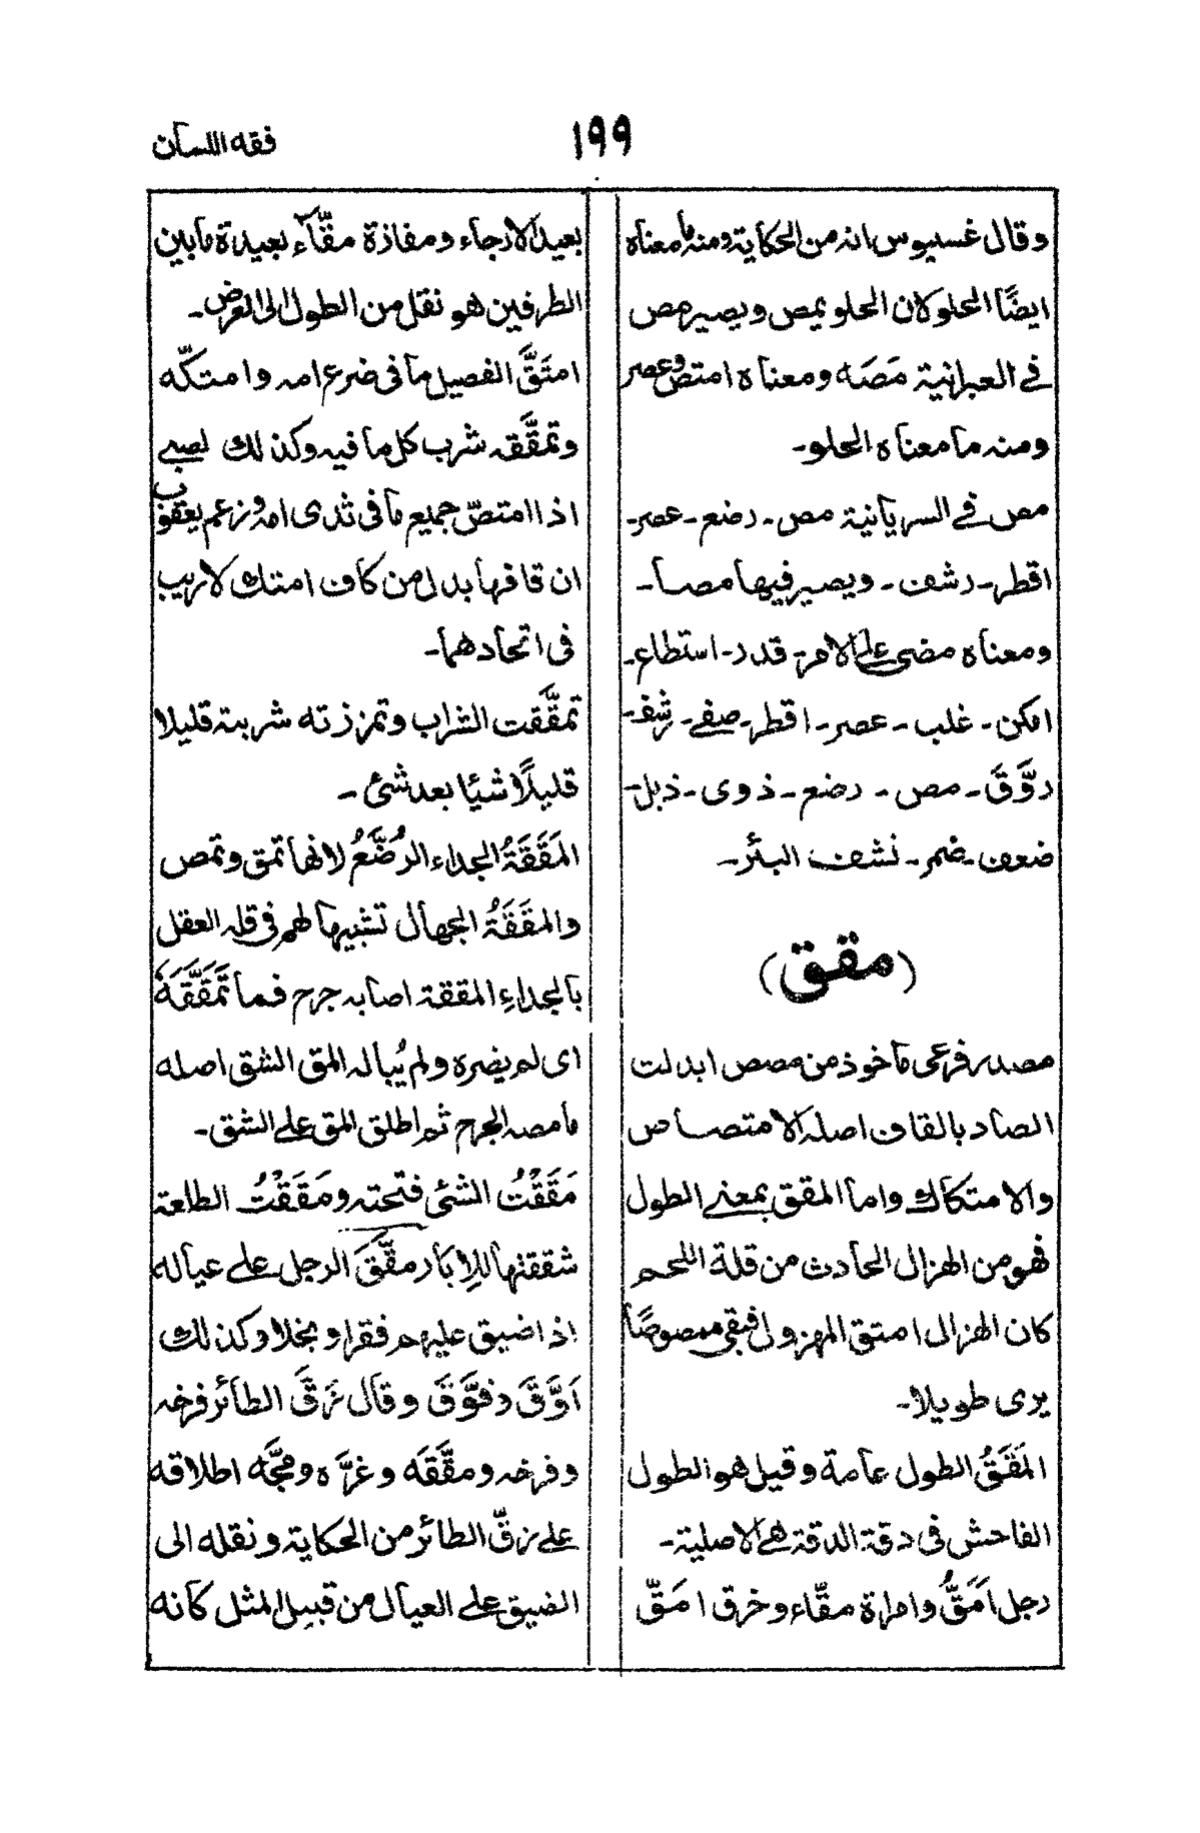 فقه اللسان
١٩٩
وقال غسيوس انه من الحكاية ومنه ما معناه
ايضًا الحلو لان الحلو يمص ويصير مص
في العبرانية مَصَه ومعناه امتص وعصر
ومنه ما معناه الحلو۔
مص في السريانية مص۔ رضع۔ عصر۔
اقطر۔ رشف۔ ويصير فيها مصا۔
ومعناه مضى على الامر۔ قدر۔ استطاع۔
امكن۔ غلب۔ عصر۔ اقطر۔ صفے۔ رشف۔
روَّقَ۔ مص۔ رضع۔ ذوى۔ ذبل۔
ضعف۔ ضمر۔ نشف البئر۔
(مقق)
مصدر فرعى ماخوذ من مصص ابدلت
الصاد بالقاف اصله الامتصاص
والامتكاك واما المقق بمعنے الطول
فهو من الهزال الحادث من قلة اللحم
كان الهزال امتق المهزول فبقى ممصوصًا
يرى طويلا۔
المَقَقُ الطول عامة وقيل هو الطول
الفاحش فى دقة الدقة هے الاصلية۔
رجل اَمَقُّ وامراة مقّاء وخرق امَقّ
بعيد الارجاء ومفازة مقّاء بعيدة مابين
الطرفين هو نقل من الطول الى العرض۔
امتَقَّ الفصيل ما فى ضرع امه وامتكّه
وتمقَّقه شرب كل ما فيه وكذلك لصبے
اذا امتصّ جميع ما فى ثدى امه وزعم يعقوب
ان قافها بدل من كاف امتك لا ريب
فى اتحادهما۔
تمقَّقت الشراب وتمززته شربته قليلا
قليلًا شيئا بعد شئ۔
المَقَقَةُ الجداء الرُضَّعُ لانها تمق وتمص
والمقَقَةُ الجهال تشبيها لهم فى قلة العقل
بالجداءِ المققة اصابه جرح فما تَمَقَّقَهُ
اى لم يضره ولم يُباله المق الشق اصله
ما مصه الجرح ثم اطلق المق على الشق۔
مَقَقْتُ الشئ فتحته ومَقَقْتُ الطلعة
شققتها للابار مقَّقَ الرجل على عياله
اذا ضيق عليهم فقرا وبخلا وكذلك
اَوَّقَ وفوَّقَ وقال زَقَّ الطائر فرخه
وفرخه ومقَّقه وغرَّه ومجَّه اطلاقه
على زقّ الطائر من الحكاية ونقله الى
الضيق على العيال من قبيل المثل كانه